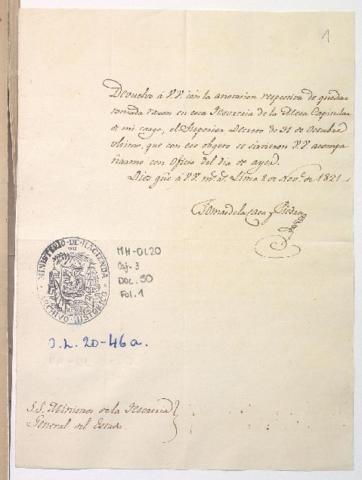 1
Devuelvo á V.V. con la anotacion respectiva de quedar
tomada razon en esta Tesoreria de la Mesa Capitular
de mi cargo, el Superior Decreto de 31 de Octubre
ultimo, que con ese objeto se sirvieron V.V. acompa
ñarme con Oficio del dia de ayer.
Dios güe á V.V. ms. as. Lima 2 de Nove. de 1821.
Tomas de la Casa y Piedra
MINISTERIO DE HACIENDA
ARCHIVO HISTORICO
MH-OL20
Caj. 3
Doc. 50
Fol. 1
O.L. 20-46a.
S.S. Ministros de la Tesoreria
General del Estado